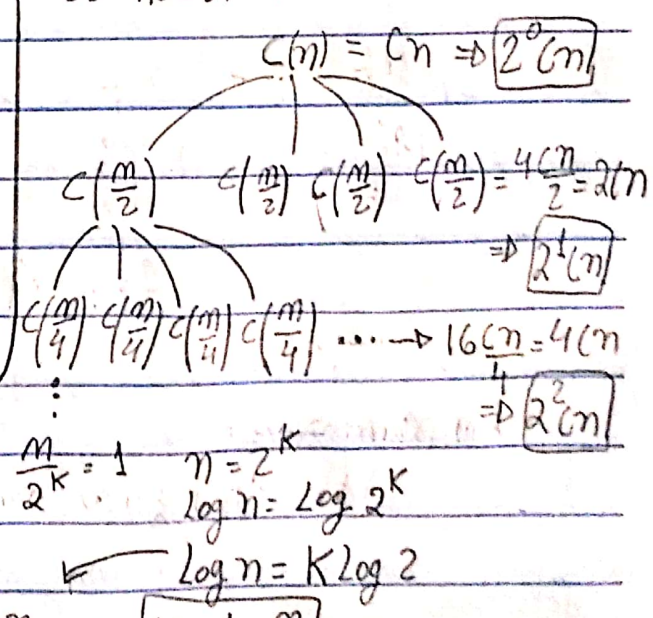 C(n) = Cn ⇒ 2⁰Cn
C(n/2) C(n/2) C(n/2) C(n/2) = 4Cn/2 = 2Cn
⇒ 2¹Cn
C(n/4) C(n/4) C(n/4) C(n/4) ... → 16Cn/4 = 4Cn
⇒ 2²Cn
⋮
n/2ᴷ = 1 n = 2ᴷ
Log n = Log 2ᴷ
← Log n = K Log 2